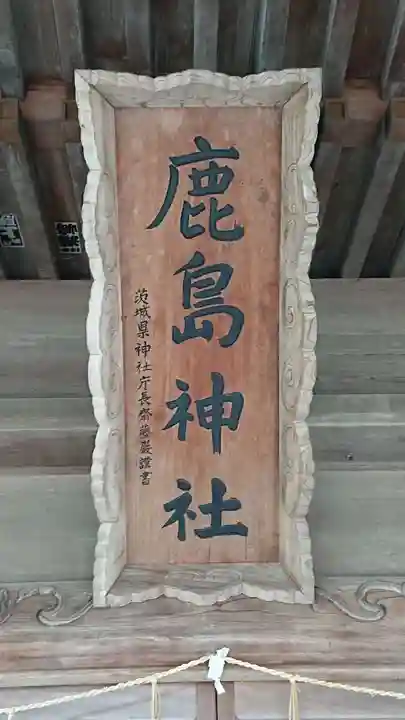 鹿島神社
茨城県神社庁長齋藤巖謹書